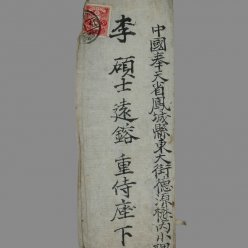 中國奉天省鳳城縣東大街德源棧內小
李碩士遠鎔重侍座下